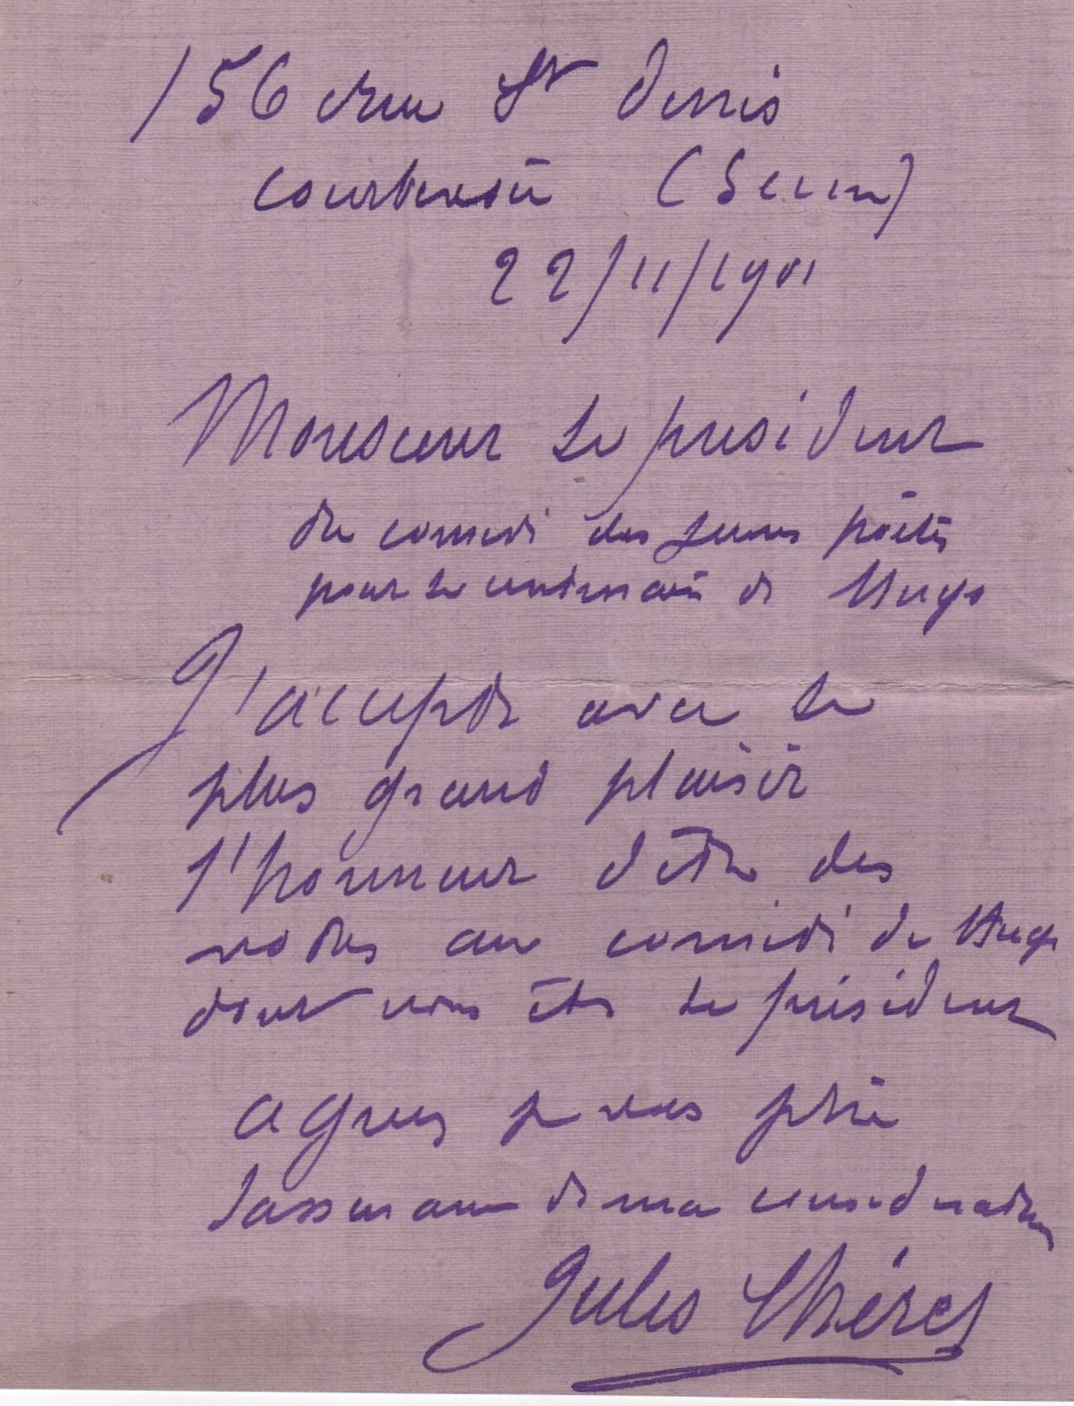 156 rue St Denis
Courbevoie (Seine)
22/11/1901
Monsieur le président
du comité des jeunes poètes
pour le centenaire de Hugo
J'accepte avec le
plus grand plaisir
l'honneur d'être des
votres au comité de Hugo
dont vous êtes le président
agreez je vous prie
l'assurance de ma consideration
Jules Chéret